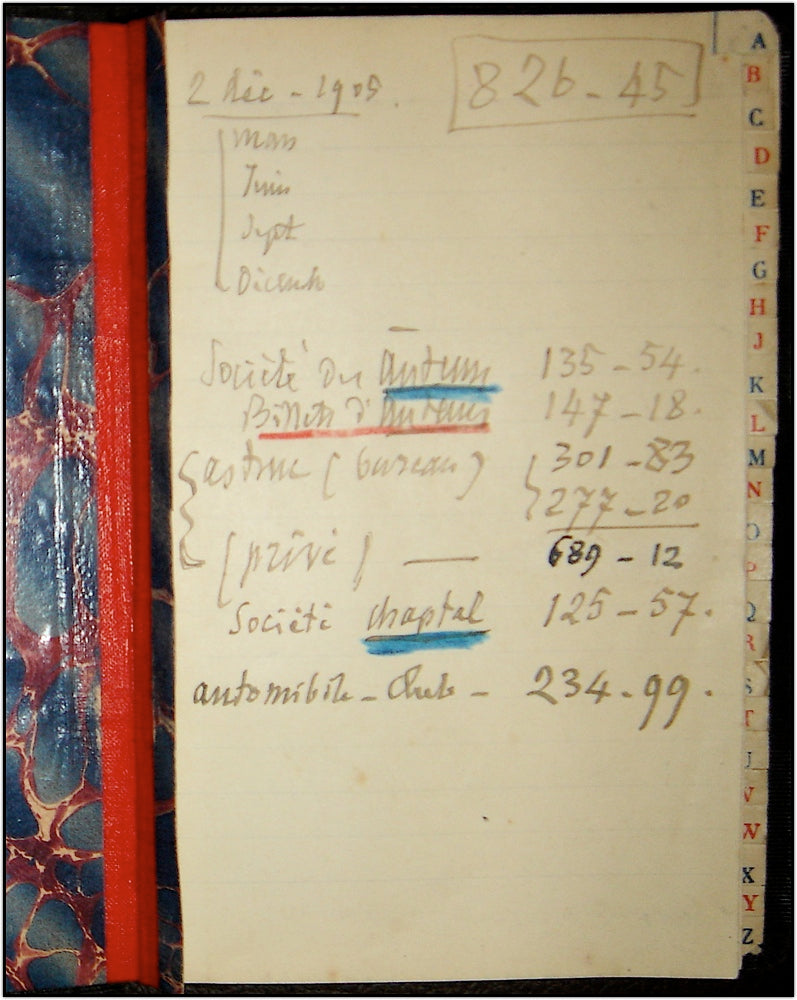 2 Déc - 1905. 826-45
Mars
Juin
Sept
Décemb
Société des Auteurs 135-54.
Billets d'Auteurs 147-18.
Astruc (bureau) 301-83
277-20
(privé) — 689-12
Société Chaptal 125-57.
automobile-Club- 234-99.
A
B
C
D
E
F
G
H
J
K
L
M
N
O
P
Q
R
S
T
U
V
W
X
Y
Z